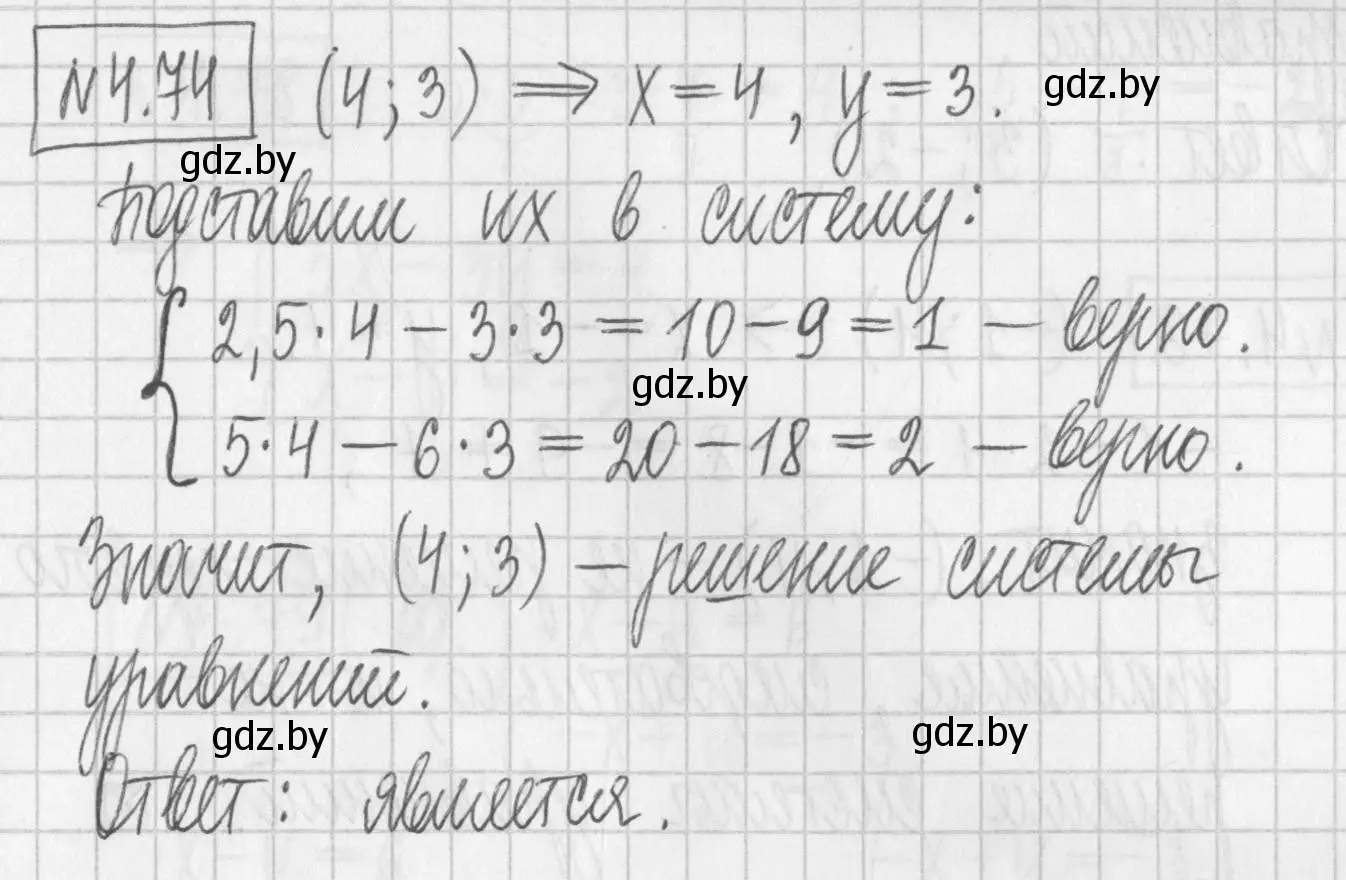 №4.74 (4; 3) ⟹ x = 4, y = 3. gdz.by
gdz.by
Подставим их в систему:
{ 2,5·4 − 3·3 = 10 − 9 = 1 — верно.
gdz.by
5·4 − 6·3 = 20 − 18 = 2 — верно.
Значит, (4; 3) — решение системы
уравнений.
gdz.by gdz.by
Ответ: является.